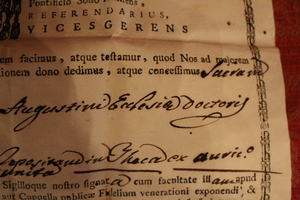 Pontificio Solio
REFERENDARIUS,
VICESGERENS
em facimus, atque testamur, quod Nos ad majorem
ionem dono dedimus, atque concessimus Sacram
Augustini Ecclesiæ Doctoris
reposuimus in Theca ex auric.
unita
Sigilloque nostro signata cum facultate illam apud
aut Cappella publicæ Fidelium venerationi exponendi, &